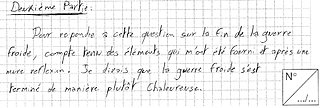 Deuxième Partie:
Pour repondre à cette question sur la fin de la guerre
froide, compte tenu des éléments qui m'ont été fourni et après une
mure reflexion. Je dirais que la guerre froide s'est
terminé de manière plutôt chaleureuse.
N°